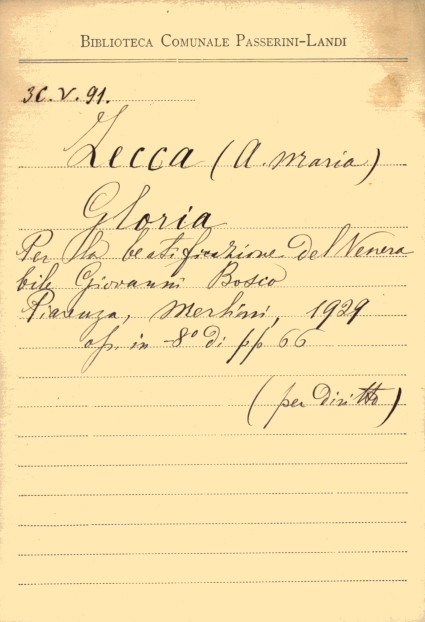 BIBLIOTECA COMUNALE PASSERINI-LANDI
3C.V.91.
Zecca (A. Maria)
Gloria
Per la beatificazione del Venera
bile Giovanni Bosco
Piacenza, Merlini, 1929
op. in-8° di pp 66
(per diritto)